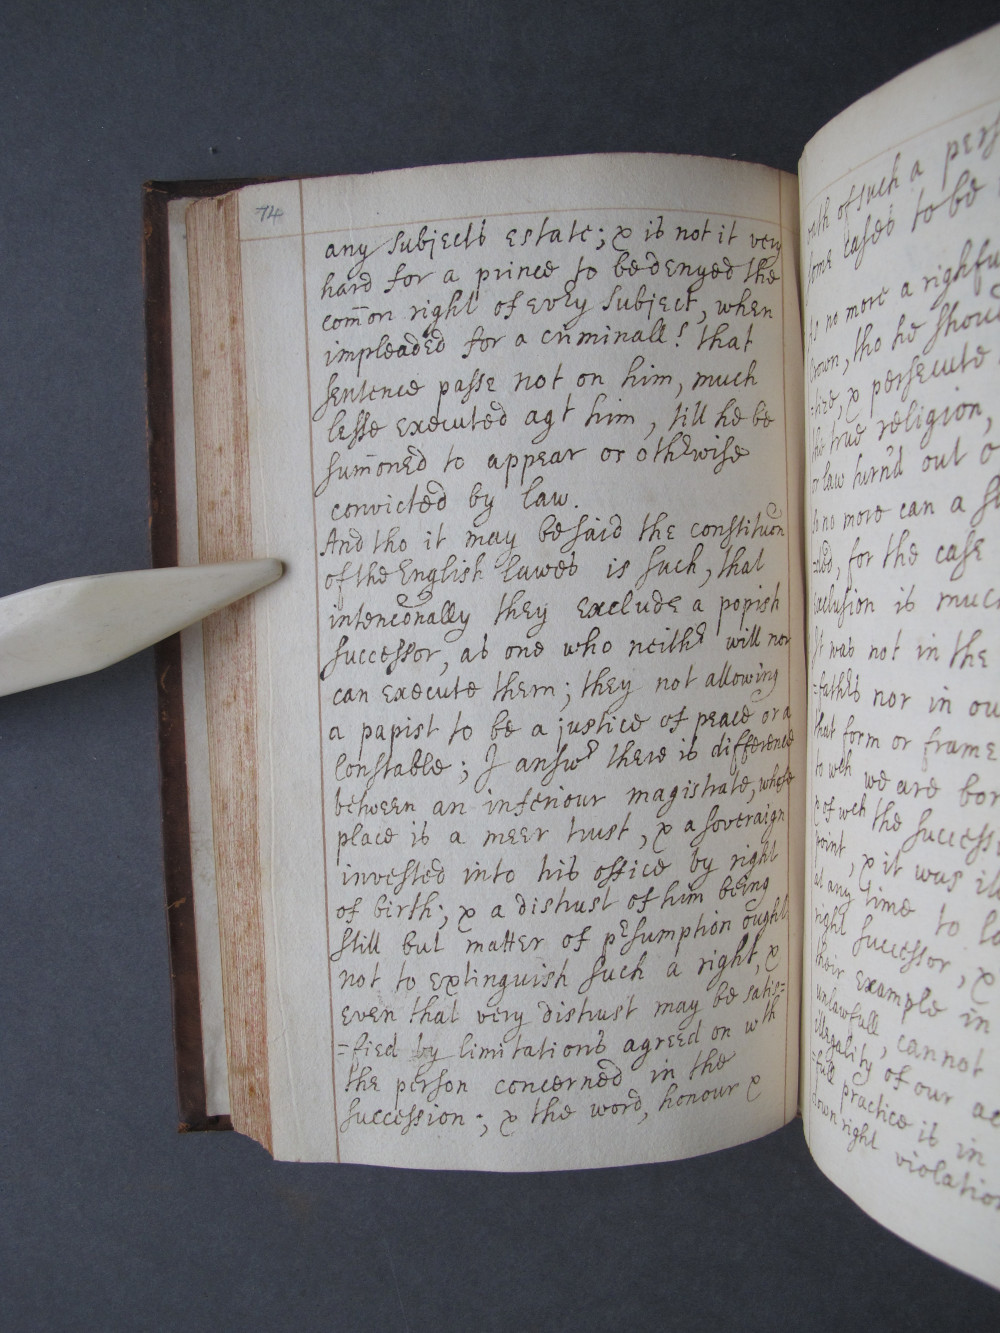 74
any subjects estate; & is not it very
hard for a prince to be denyed the
com̄on right of evͤry subject, when
impleaded for a criminall! that
sentence passe not on him, much
lesse executed agt him, till he be
sum̄oned to appear or othͤrwise
convicted by law.
And tho it may be said the constitucōn
of the English lawes is such, that
intencōnally they exclude a popish
successor, as one who neithͤr will nor
can execute them; they not allowing
a papist to be a justice of peace or a
Constable; I answͤr there is difference
between an inferiour magistrate, whose
place is a meer trust, & a soveraign
invested into his office by right
of birth; & a distrust of him being
still but matter of pͤsumption ought
not to extinguish such a right, &
even that very distrust may be satis=
=fied by limitations agreed on wth
the person concerned in the
succession; & the word, honour &
oath of such a pers
some cases to be
no more a rightfu
Crown, tho he shou
=tize, & persecute
the true religion,
or law turn'd out o
so no more can a su
=ded, for the case
exclusion is muc
It was not in the
=fathͤrs nor in ou
that form or frame
to wch we are bor
& of wch the successi
point, & it was ill
at any time to la
right successor, &
their example in
unlawfull, cannot
illegality of our ac
=full practice is in
down right violation